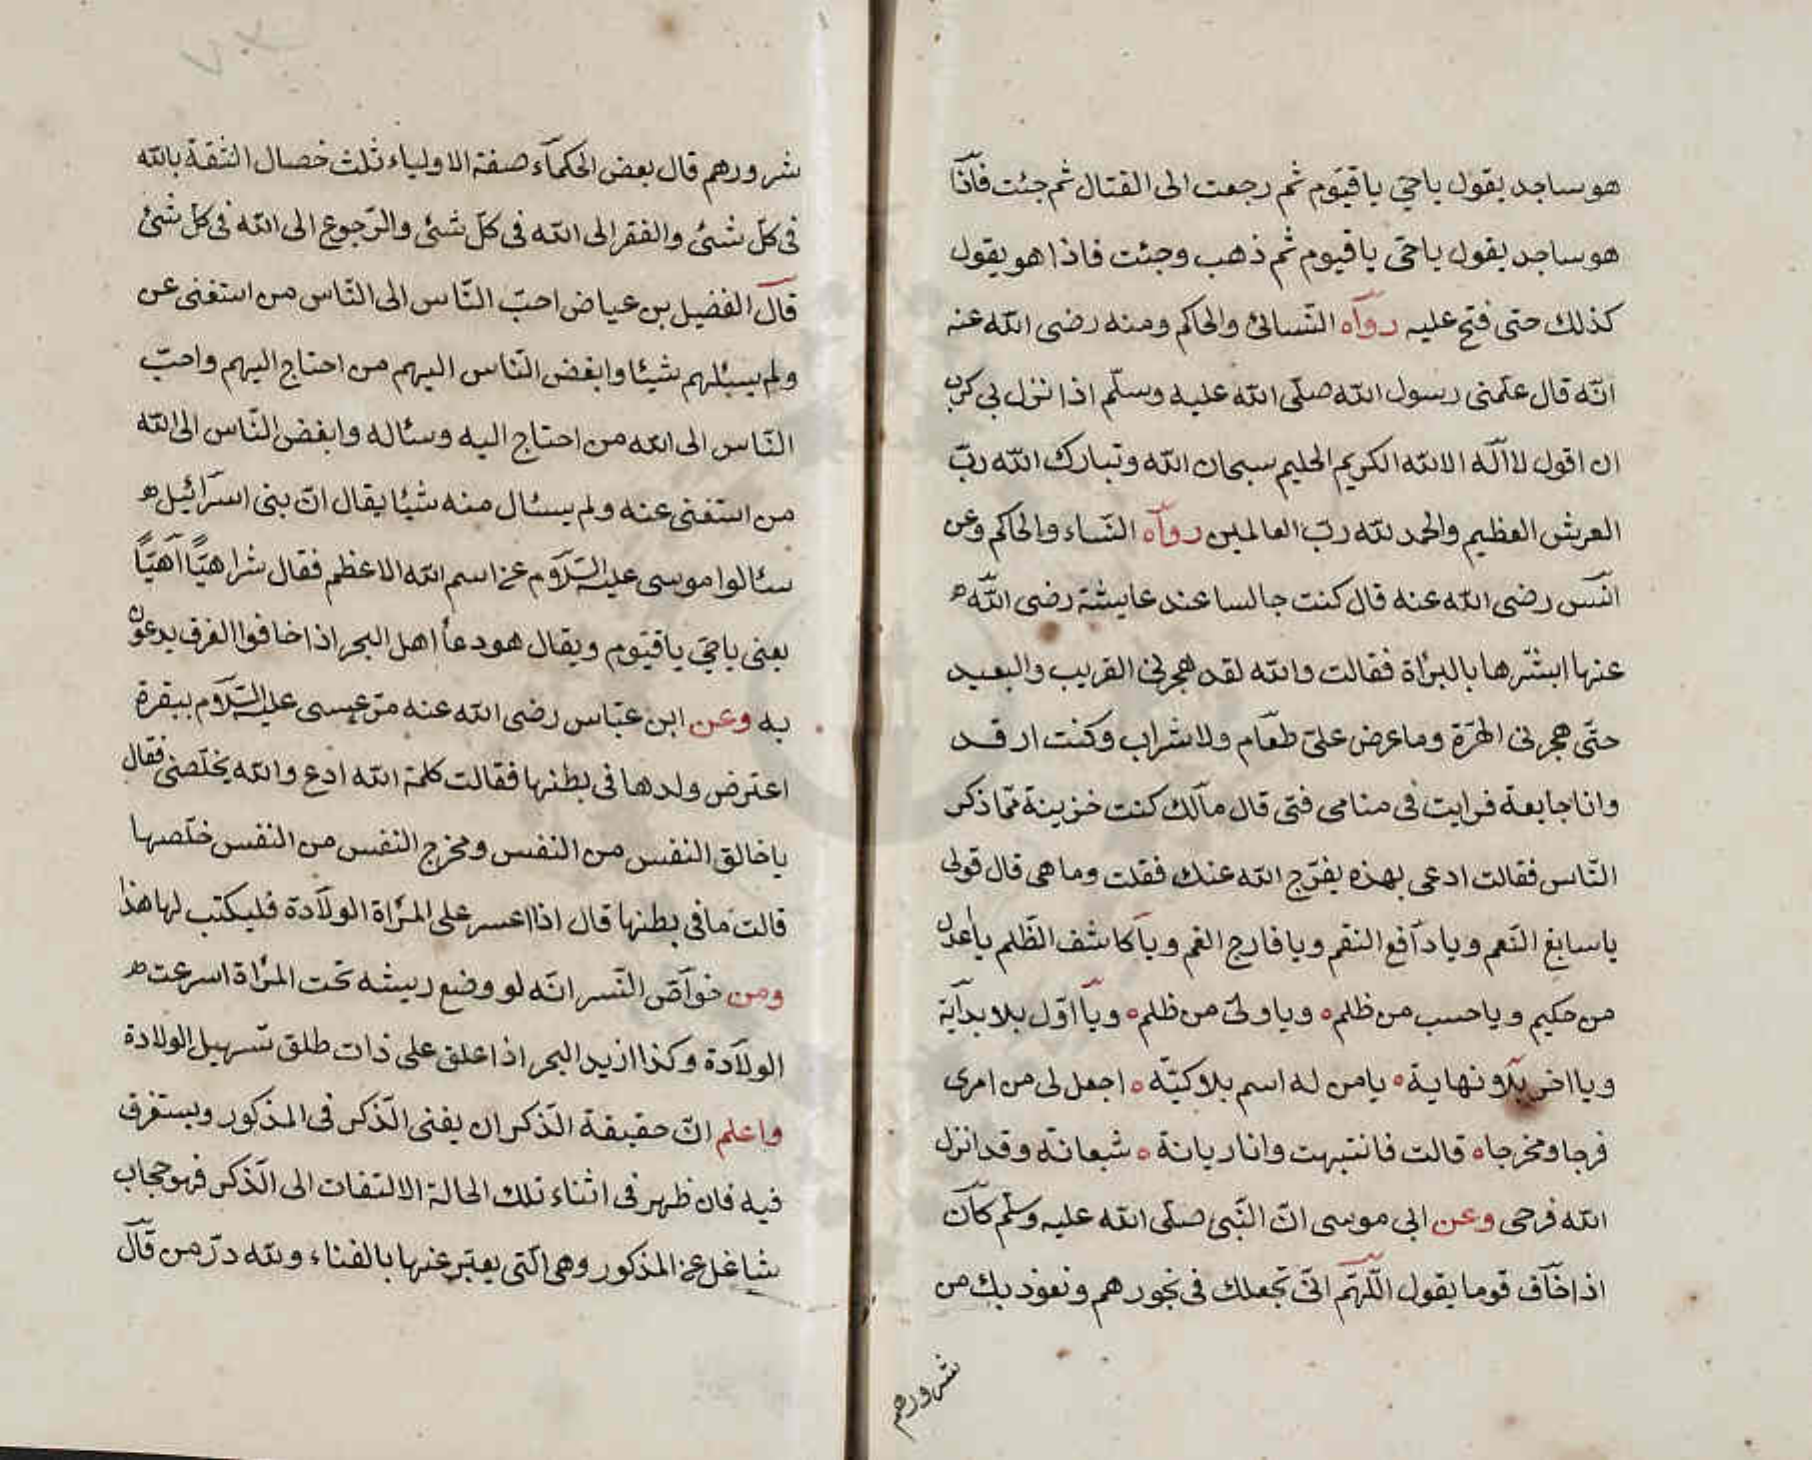 هو ساجد يقول ياحيّ ياقيّوم ثم رجعت الى القتال ثم جئت فاذا
هو ساجد يقول ياحيّ ياقيوم ثم ذهب وجئت فاذا هو يقول
كذلك حتى فتح عليه رواه النّسائىّ والحاكم ومنه رضى الله عنه
انّه قال علّمنى رسول الله صلّى الله عليه وسلّم اذا نزل بى كرب
ان اقول لا اله الا الله الكريم الحليم سبحان الله وتبارك الله ربّ
العرش العظيم والحمد لله ربّ العالمين رواه النّساء والحاكم وعن
انس رضى الله عنه قال كنت جالسا عند عايشة رضى الله
عنها ابشّرها بالبرأة فقالت والله لقد هجرنى القريب والبعيد
حتّى هجرنى الهرّة وما عرض علىّ طعام ولا شراب وكنت ارقد
وانا جايعة فرايت فى منامى فتى قال مالك كنت حزينة ممّا ذكر
النّاس فقالت ادعى بهذه يفرّج الله عنك فقلت وما هى قال قولى
ياسابغ النّعم ويا دافع النقم ويا فارج الغم ويا كاشف الظّلم يا اعدل
من حكيم ويا حسب من ظلم ٥ ويا ولىّ من ظلم ٥ ويا اوّل بلا بداية
ويا اخر بلا نهاية ٥ يامن له اسم بلا كنيّة ٥ اجعل لى من امرى
فرجا ومخرجا ٥ قالت فانتبهت وانا ريانة ٥ شبعانة وقد انزل
الله فرجى وعن ابى موسى انّ النّبى صلّى الله عليه وسلّم كان
اذا خاف قوما يقول اللّهمّ انّى نجعلك فى نحورهم ونعوذ بك من
شرورهم
شرورهم قال بعض الحكماء صفة الاولياء ثلث خصال الثقة بالله
فى كلّ شئ والفقر الى الله فى كلّ شئ والرّجوع الى الله فى كل شئ
قال الفضيل بن عياض احبّ النّاس الى النّاس من استغنى عن
ولم يسئلهم شيئا وابغض النّاس اليهم من احتاج اليهم واحبّ
النّاس الى الله من احتاج اليه وسئاله وابغض النّاس الى الله
من استغنى عنه ولم يسئال منه شيئا يقال انّ بنى اسرائيل
سئالوا موسى عليه السّلام عن اسم الله الاعظم فقال شراهيّا اهيّا
يعنى ياحيّ ياقيّوم ويقال هو دعأ اهل البحر اذا خافوا الغرق يدعون
به وعن ابن عبّاس رضى الله عنه مرّ عيسى عليه السّلام ببقرة
اعترض ولدها فى بطنها فقالت كلمة الله ادع والله يخلّصنى فقال
ياخالق النفس من النفس ومخرج النفس من النفس خلّصها
قالت ما فى بطنها قال اذا اعسر على المرأة الولادة فليكتب لها هذا
ومن خواصّ النّسر انّه لو وضع ريشه تحت المرأة اسرعت
الولادة وكذا ازيد البحر اذا علق على ذات طلق تسهيل الولادة
واعلم انّ حقيقة الذّكر ان يفنى الذّكر فى المذكور ويستغرق
فيه فان ظهر فى اثناء تلك الحالة الالتفات الى الذّكر فهو حجاب
شاغل عن المذكور وهى الّتى يعبّر عنها بالفناء ولله درّ من قال